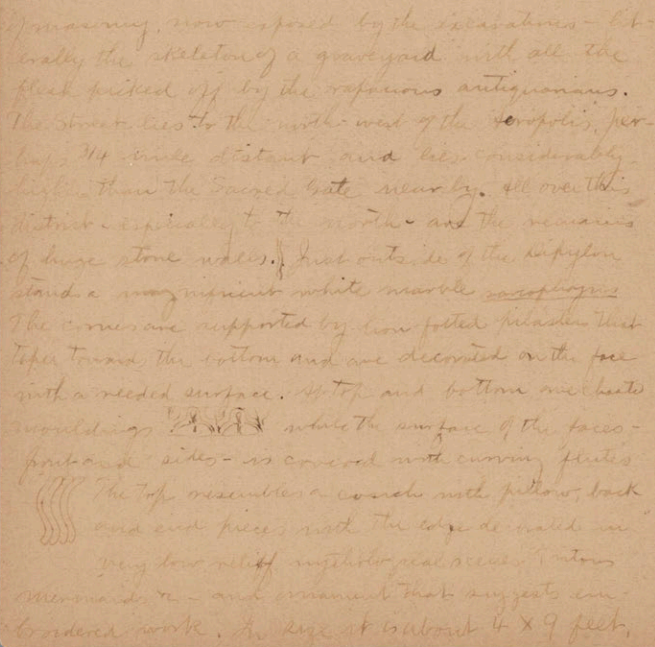 of masonry, now exposed by the excavations - lit-
erally the skeleton of a graveyard with all the
flesh picked off by the rapacious antiquarians.
The Street lies to the north-west of the Acropolis, per-
haps 3/4 mile distant and lies considerably
higher than the Sacred Gate near by. All over this
district - especially to the north - are the remains
of huge stone walls. Just outside of the Dipylon
stands a magnificent white marble sarcophagus
The corners are supported by lion footed pilasters that
taper toward the bottom and are decorated on the face
with a reeded surface. At top and bottom are
mouldings while the surface of the faces -
front and sides - is covered with curving flutes
The top resembles a couch with pillow, back
and end pieces with the edge decorated in
very low relief mythological scenes Tritons
mermaids &c - and ornament that suggests em-
broidered work. In size it is about 4 x 9 feet,